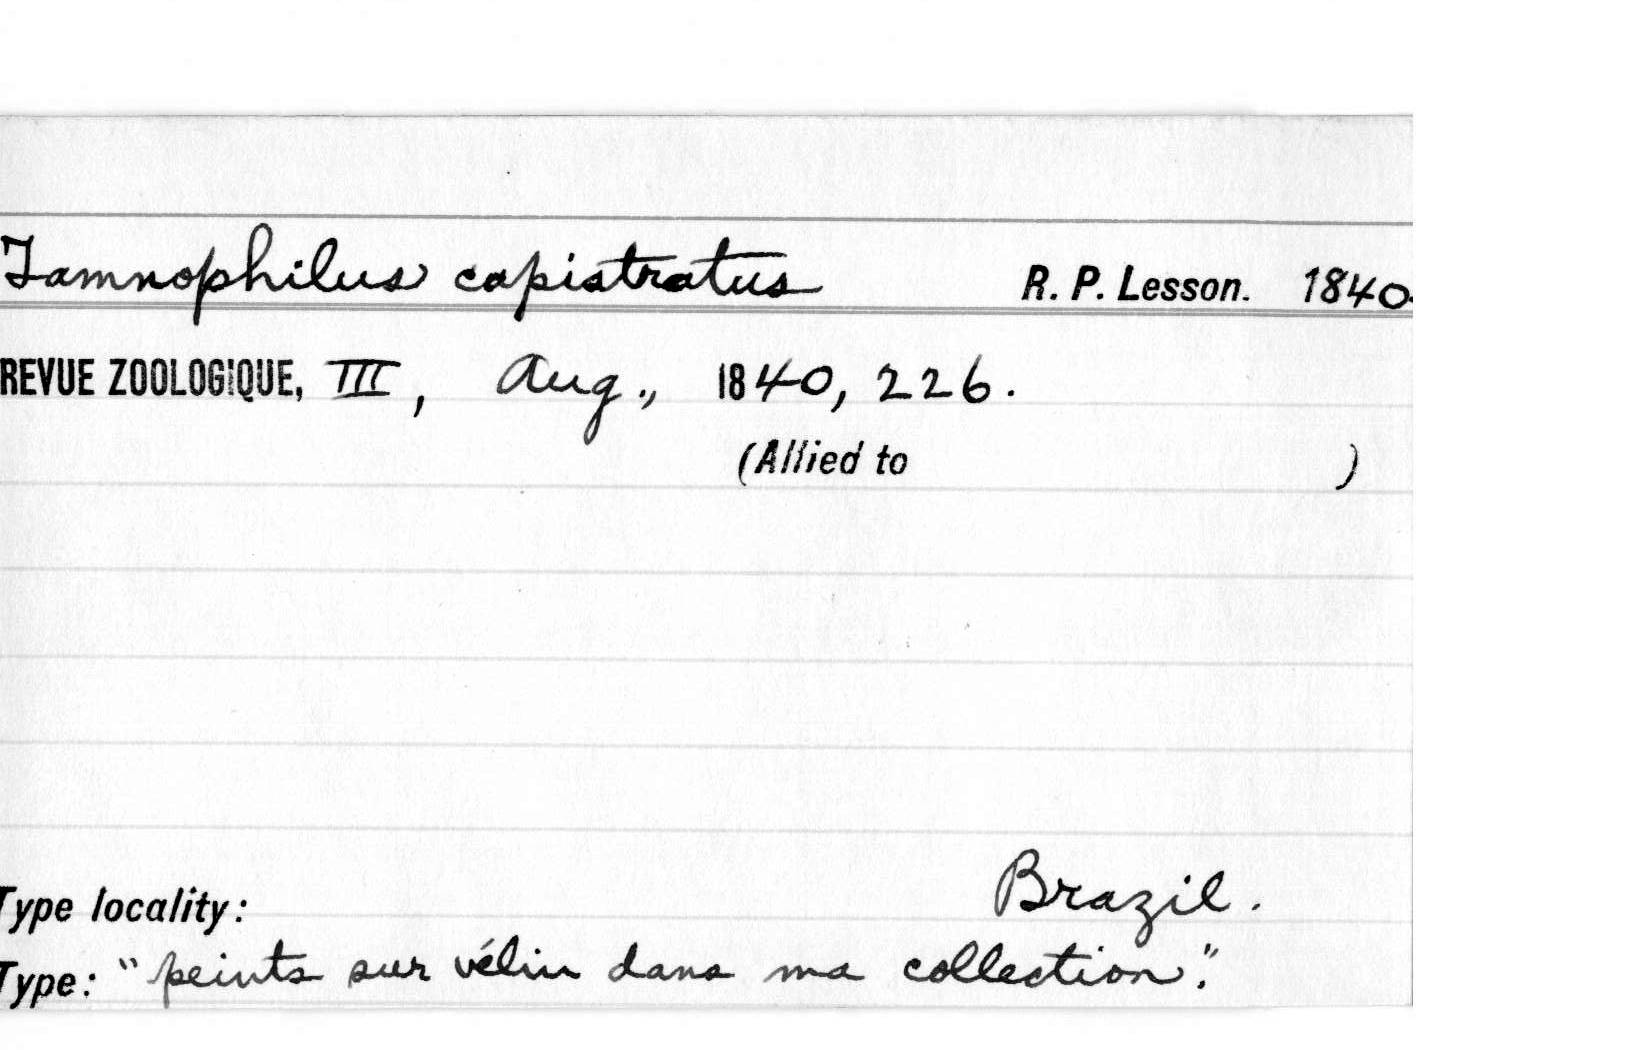 Tamnophilus capistratus R. P. Lesson. 1840.
REVUE ZOOLOGIQUE, III, Aug., 1840, 226.
(Allied to )
Type locality: Brazil.
Type: "peints sur vélin dans ma collection".